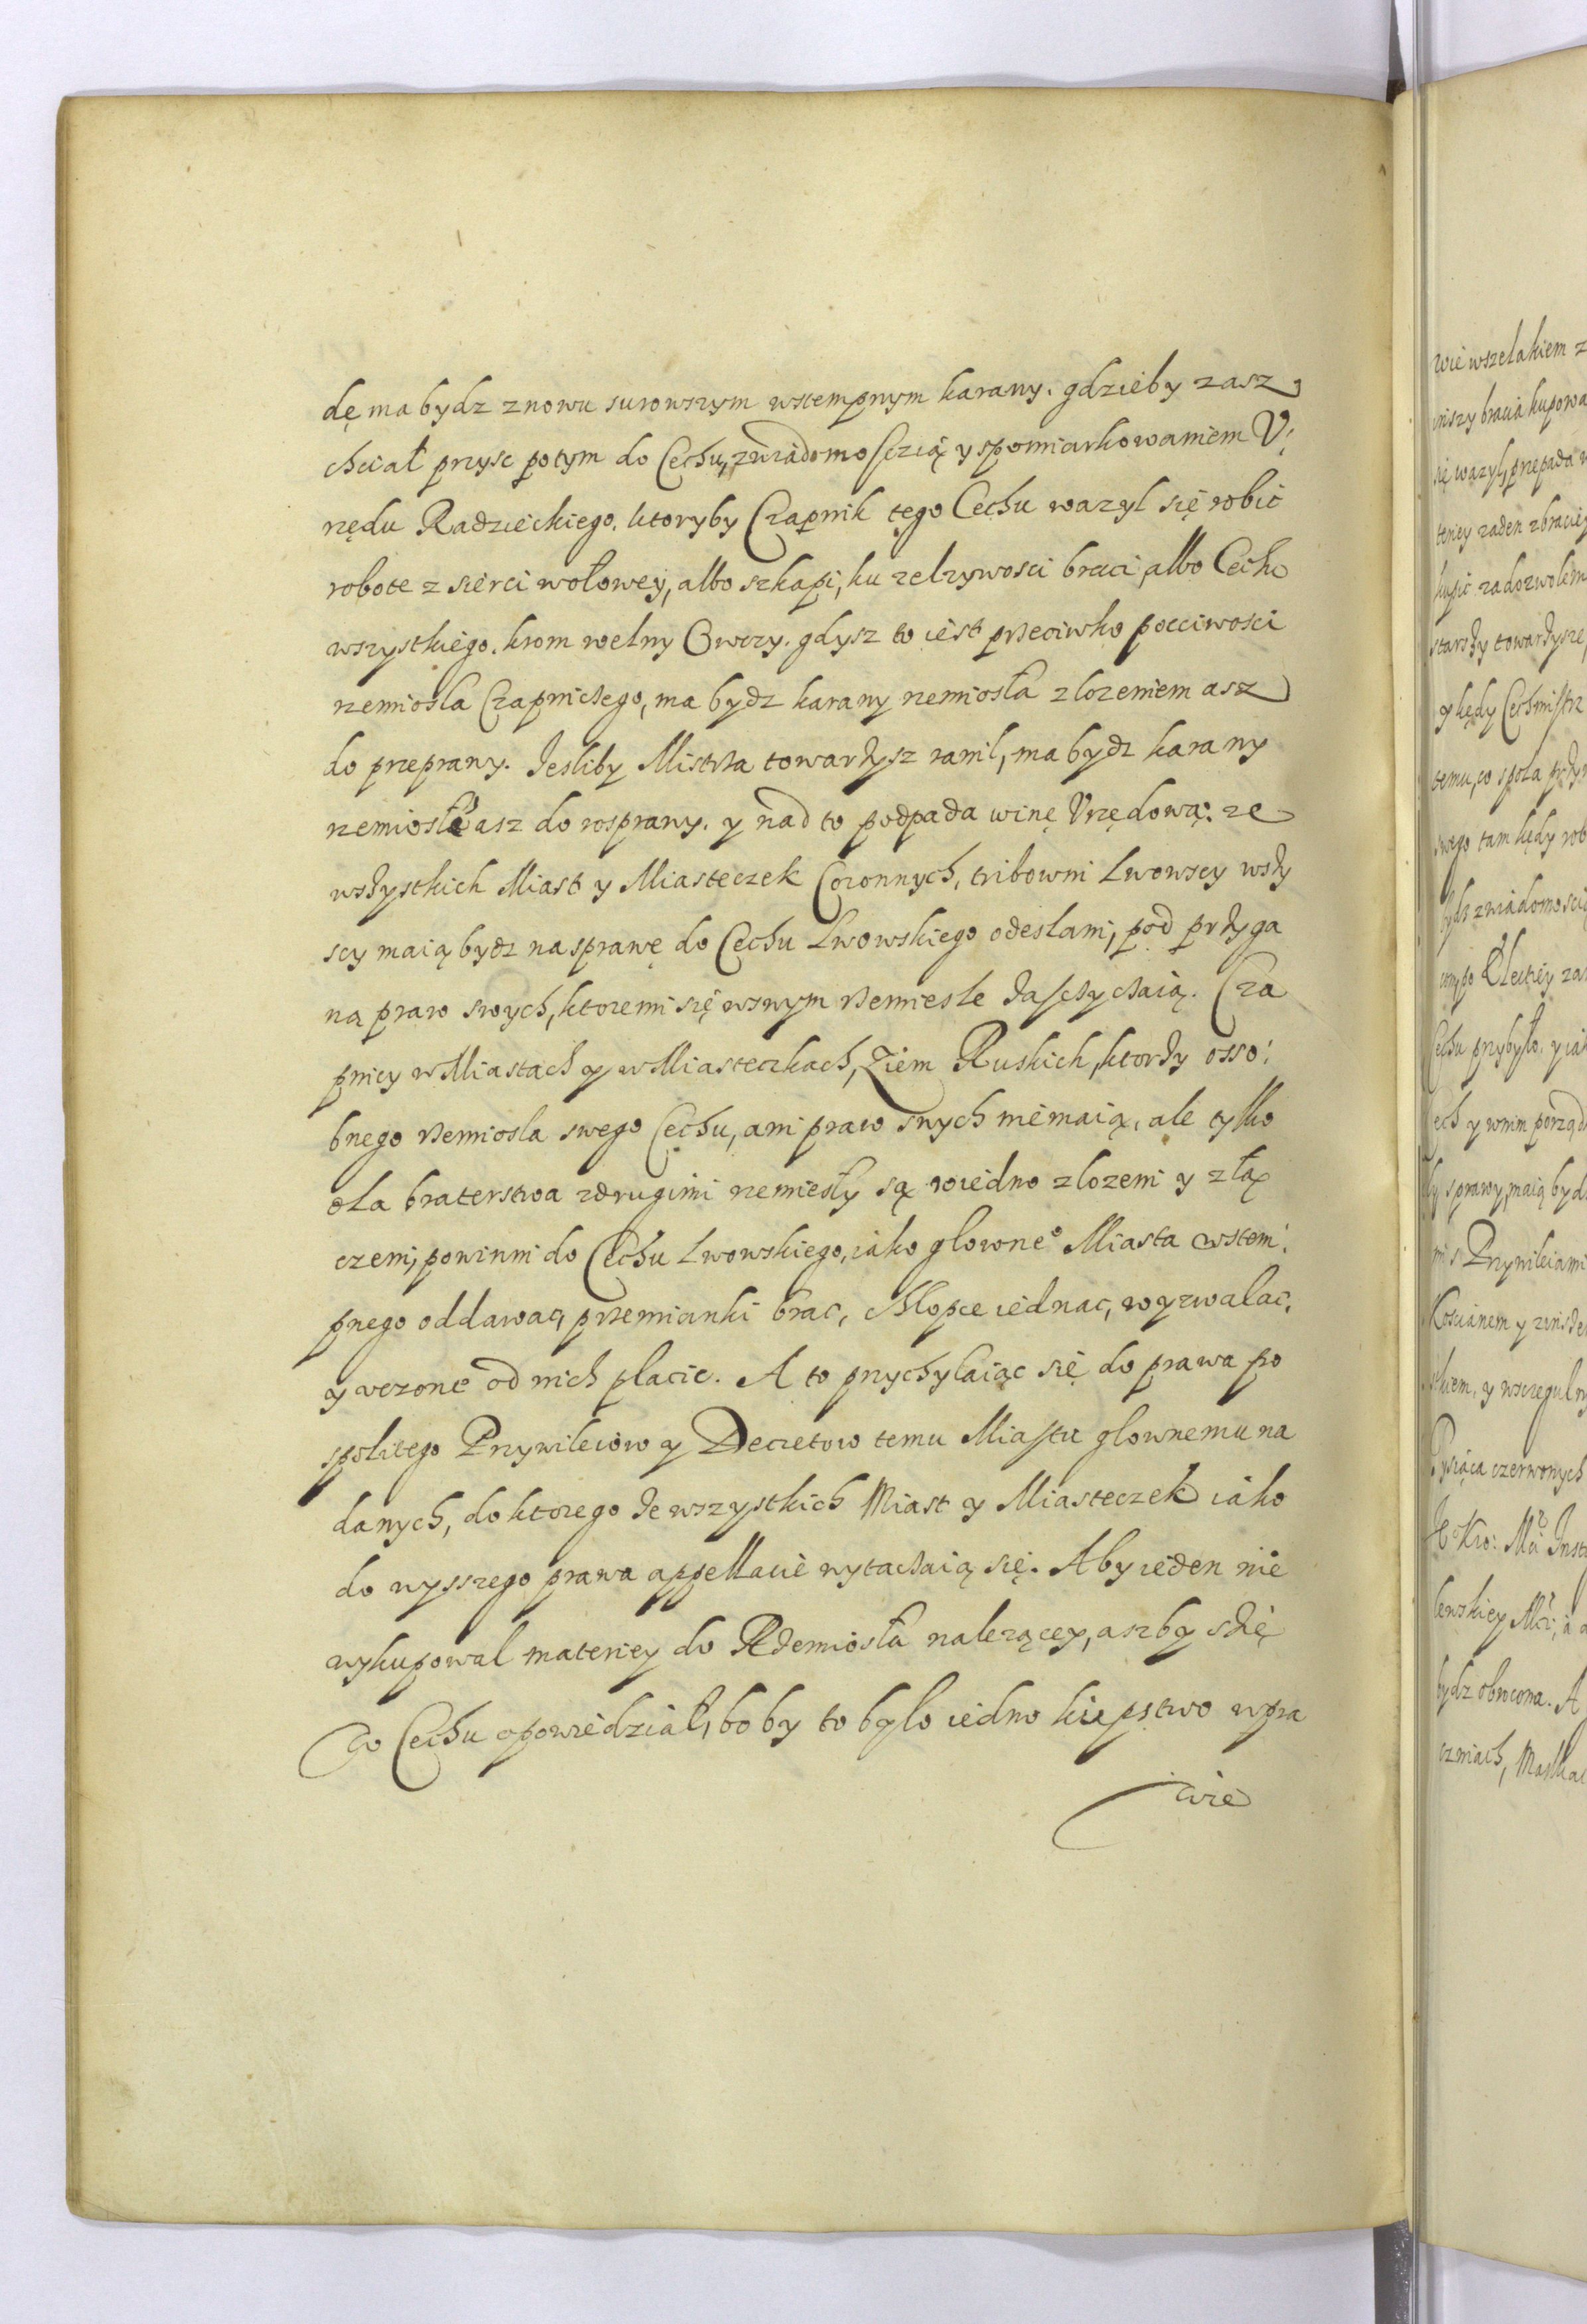 dę ma bydz znowu surowszym wstempnym karany. gdzieby zasz
chciał przysc potym do Cechu, zwiadomosczią y spomiarkowaniem V:
rzędu Radzieckiego. ktoryby Czapnik tego Cechu wazyl się robic
robote z sierci wołowey, albo szkapi, ku zelzywosci braci, albo Cechu
wszystkiego. krom welny Owczy. gdysz to iest przeciwko pocciwosci
rzemiosla Czapniczego, ma bydz karany rzemiosła zlozeniem asz
do przeprawy. Jesliby Mistrza towarzysz ranil, ma bydz karany
rzemiosłe asz do rosprawy. y nad to podpada winę Vrzędową: ze
wszystkich Miast y Miasteczek Coronnych, tribowni Lwowscy wszy
scy maią bydz na sprawę do Cechu Lwowskiego odeslani, pod przyga
ną praw swych, ktoremi się wswym rzemiesle zasczyczaią. Cza
pnicy w Miastach y w Miasteczkach, Ziem Ruskich, ktorzy osso:
bnego rzemiosla swego Cechu, ani praw swych niemaią, ale tylko
dla braterstwa zdrugimi rzemiesly są wiedno zlozeni y złą
czeni, powinni do Cechu Lwowskiego, iako glowneo Miasta wstem:
pnego oddawac, przemianki brac, chłopce iednac, wyzwalac,
y vczone od nich placic. A to przychylaiąc się do prawa po
spolitego Przywileiow y Decretow temu Miastu glownemu na
danych, do ktorego ze wszystkich Miast y Miasteczek iako
do wysszego prawa appellacie wytaczaią się. Aby ieden nie
wykupowal materiey do Rzemiosła nalezącey, aszby szię
w Cechu opowiedział, bo by to bylo iedno kiepstwo wpra
wie
wie wszelakiem z
inszy bracia kupowa
się wazyl, przepada
teriey zaden zbraciey
kupic za dozwolem
starszy towarzysze,
y kędy Cechmistrz
temu, co spola przy
swego tam kędy rob
bydz zwiadomoscią
Cechu przybyło. y iak
ech y winn porząd
sprawy, maią byd
Przywileiami
Koscianem y zinsze
y wszczegulny
Tysiąca czerwonych
Kro: Mci Inst
lewskiey Mci, a
bydz obrocona. A
czniach, Maszka